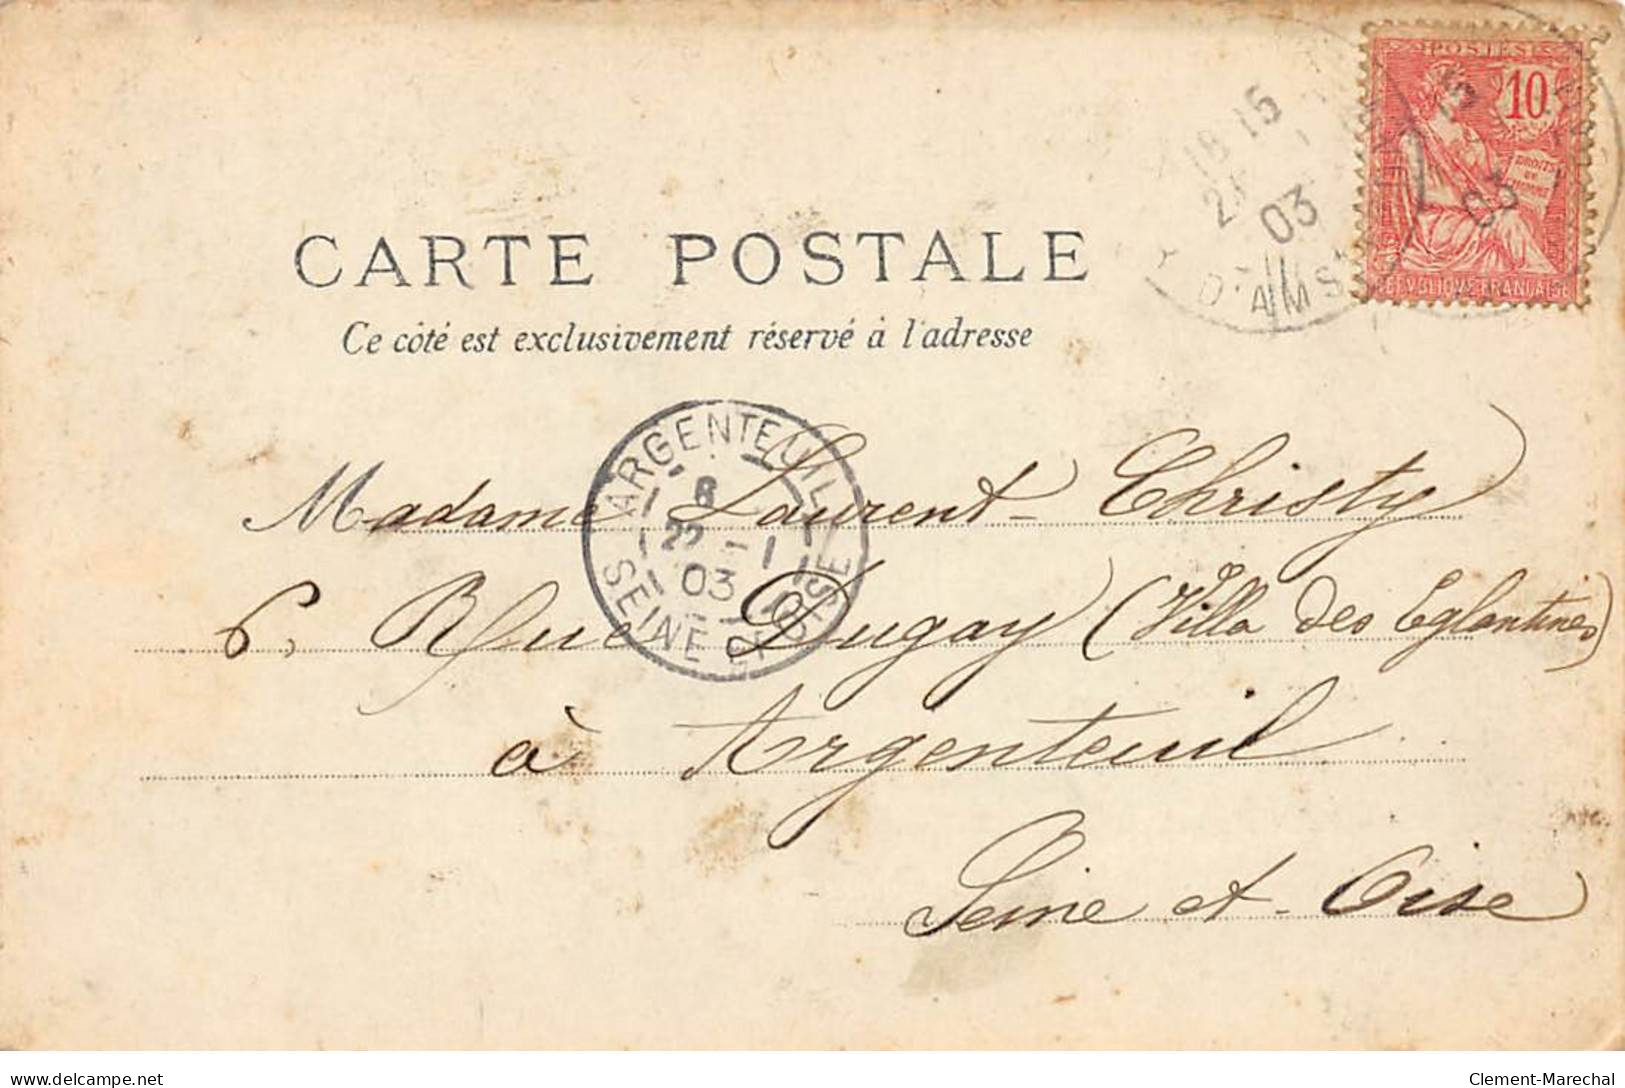 POSTES
10
DROITS
DE
L'HOMME
REPUBLIQUE FRANÇAISE
18 15
03
03
D'AMS
CARTE POSTALE
Ce côté est exclusivement réservé à l'adresse
ARGENTEUIL
8
22 - 1
03
SEINE ET OISE
Madame Laurent-Christy
6, Rue Dugay (Villa des Eglantines)
à Argenteuil
Seine et-Oise
delcampe.net
Clement-Marechal